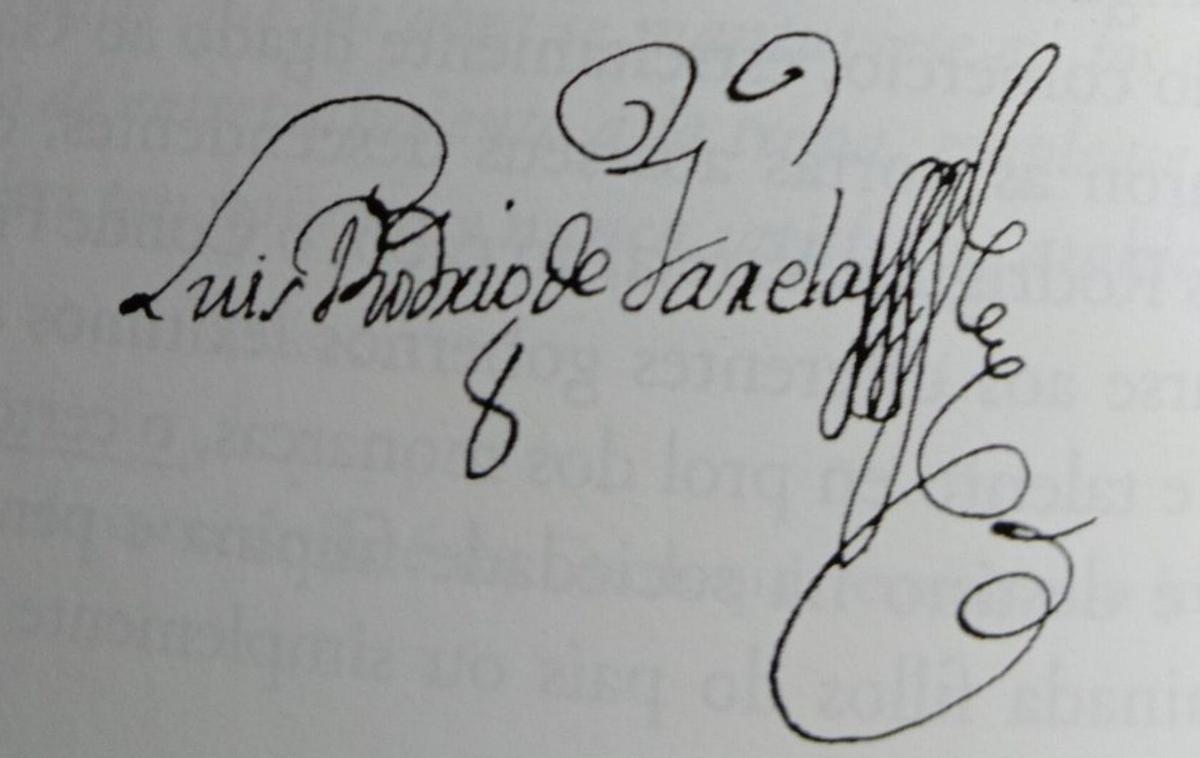 Luis Rodrig de Varela